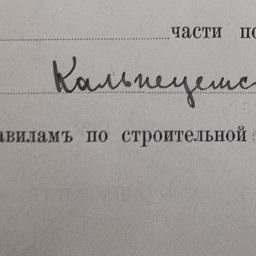 части по
Кальпецемс
авиламъ по строительной